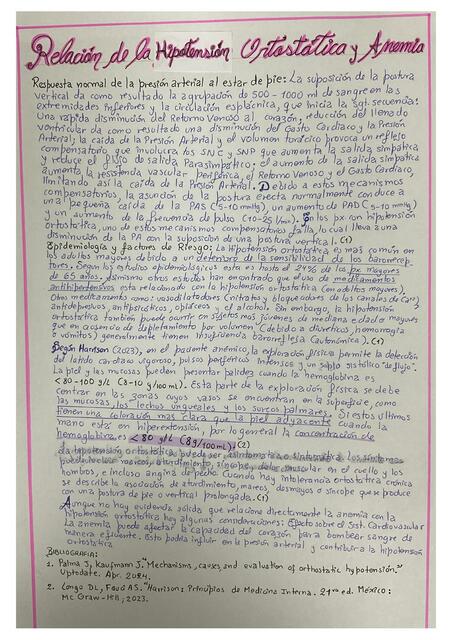 Relación de la Hipotensión Ortostática y Anemia
Respuesta normal de la presión arterial al estar de pie: La suposición de la postura
vertical da como resultado la agrupación de 500 - 1000 ml de sangre en las
extremidades inferiores y la circulación esplácnica, que inicia la sgt. secuencia:
Una rápida disminución del Retorno Venoso al corazón, reducción del llenado
ventricular da como resultado una disminución del Gasto Cardiaco y la Presión
Arterial; la caída de la Presión Arterial y el volumen torácico provoca un reflejo
compensatorio que involucra los SNC y SNP que aumenta la salida simpática
y reduce el flujo de salida Parasimpático; el aumento de la salida simpática
aumenta la resistencia vascular periférica, el Retorno Venoso y el Gasto Cardiaco,
limitando así la caída de la Presión Arterial. Debido a estos mecanismos
compensatorios, la asunción de la postura erecta normalmente conduce a
una pequeña caída de la PAS (5-10 mmHg), un aumento de PAD (5-10 mmHg)
y un aumento de la frecuencia de pulso (10-25 l/min). En los px con hipotensión
ortostática, uno de estos mecanismos compensatorios falla, lo cual lleva a una
disminución de la PA con la suposición de una postura vertical. (1)
Epidemiología y factores de Riesgo: La hipotensión ortostática es más común en
los adultos mayores debido a un deterioro de la sensibilidad de los barorecep-
tores. Según los estudios epidemiológicos esta es hasta el 24% de los px mayores
de 65 años. Asimismo otros estudios han encontrado que el uso de medicamentos
antihipertensivos esta relacionado con la hipotensión ortostática (con adultos mayores).
Otros medicamentos como: vasodilatadores (nitratos y bloqueadores de los canales de Ca),
antidepresivos, antipsicóticos, opiáceos y el alcohol. Sin embargo, la hipotensión
ortostática también puede ocurrir en sujetos más jóvenes de mediana edad a mayores
que en ausencia de agotamiento por volumen (debido a diuréticos, hemorragia
o vómitos) generalmente tienen insuficiencia barorefleja (autonómica). (1)
Según Harrison (2023), en el paciente anémico, la exploración física permite la detección
del latido cardiaco vigoroso, pulsos periféricos intensos y un soplo sistólico "de flujo".
La piel y las mucosas pueden presentar palidez cuando la hemoglobina es
< 80-100 g/L (8-10 g/100 ml). Esta parte de la exploración física se debe
centrar en las zonas cuyos vasos se encuentran en la superficie, como
las mucosas, los lechos ungueales y los surcos palmares. Si estos últimos
tienen una coloración más clara que la piel adyacente cuando la
mano está en hiperextensión, por lo general la concentración de
hemoglobina es < 80 g/L (8g/100ml). (2)
La hipotensión ortostática puede ser asintomática o sintomática. Los síntomas
puede incluir mareos, aturdimiento, síncope y dolor muscular en el cuello y los
hombros, e incluso angina de pecho. Cuando hay intolerancia ortostática crónica
se describe la asociación de aturdimiento, mareos, desmayos o síncope que se produce
con una postura de pie o vertical prolongada. (1)
Aunque no hay evidencia sólida que relacione directamente la anemia con la
hipotensión ortostática hay algunas consideraciones: Efecto sobre el Sist. Cardiovascular
La anemia puede afectar la capacidad del corazón para bombear sangre de
manera eficiente. Esto podría influir en la presión arterial y contribuir a la hipotensión
ortostática
BIBLIOGRAFIA:
1. Palma J, Kaufmann J. "Mechanisms, causes, and evaluation of orthostatic hypotension."
Uptodate. Apr. 2024.
2. Longo DL, Fauci AS. "Harrison: Principios de Medicina Interna. 21va ed. México:
Mc Graw-Hill; 2023.